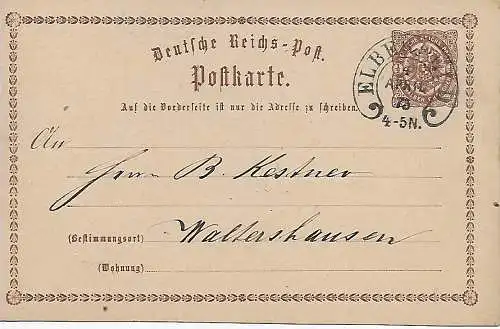 Deutsche Reichs-Post.
Postkarte.
ELBERFELD
APRIL
75
4-5N.
Auf die Vorderseite ist nur die Adresse zu schreiben.
An
Herrn B. Kestner
(Bestimmungsort) Waltershausen
(Wohnung)